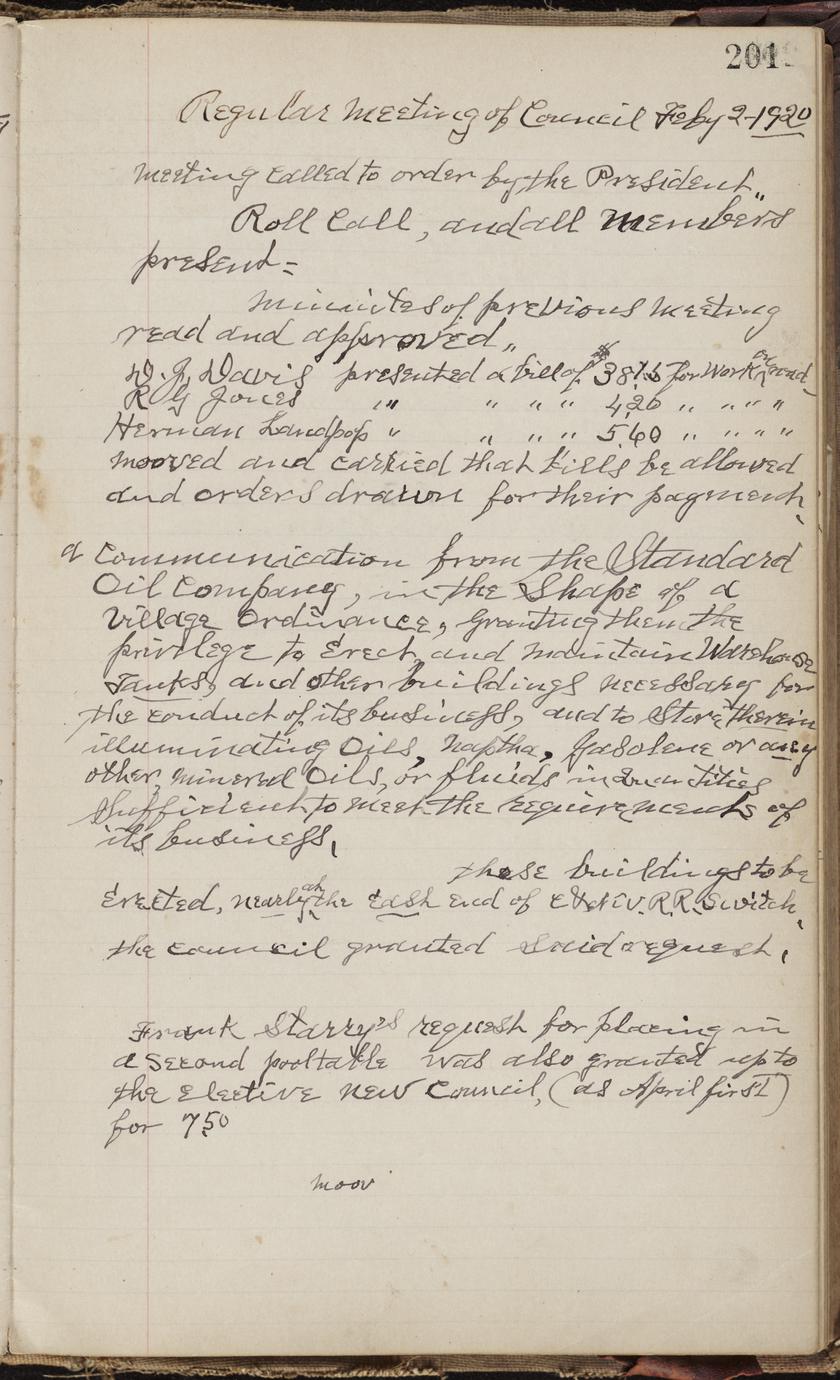 201
Regular Meeting of Council Feby 2-1920
Meeting called to order by the President,,
Roll Call, and all Members
present =
minnites of previous meeting
read and approved,,
presented a bill of $ for Work on road
R G Jones " " " " 4.20 " " " "
Herman " " " " 5.60 " " " "
mooved and carried that bills be allowed
and orders drawn for their payment,
a Communication from the Standard
Oil Company, in the Shape of a
Village Ordinance, Granting them the
privilege to Erect and maintain Warehouse
Tanks, and other buildings necessary for
the conduct of its business, and to Store therein
illuminating Oils, Naptha, Gasolene or any
other, mineral Oils, or fluids in quantities
Sufficient, to meet the requirements of
its business,
these buildings to be
Erected, nearly at the East end of R.R. Switch,
the council granted said request,
Frank Starry's request for placing in
a second pooltable was also granted up to
the Elective new Council, (as April first)
for 7.50
moov